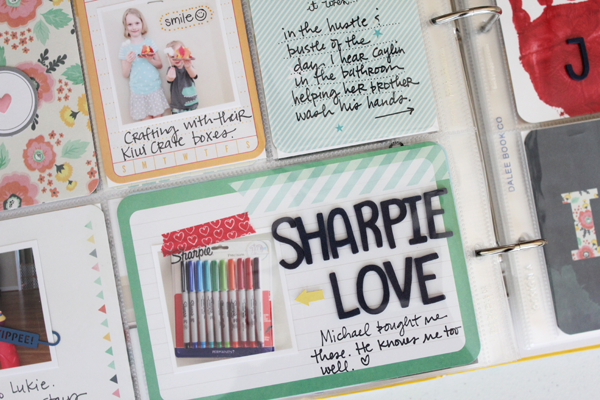 smile
Crafting with their
Kiwi Crate boxes.
S M T W T F S
it won...
in the hustle &
bustle of the
day, I hear Caylin
in the bathroom
helping her brother
wash his hands.
J
DALEE BOOK CO
I
Sharpie
SHARPIE
LOVE
Michael bought me
these. He knows me too
well.
YIPPEE!
Lukie.